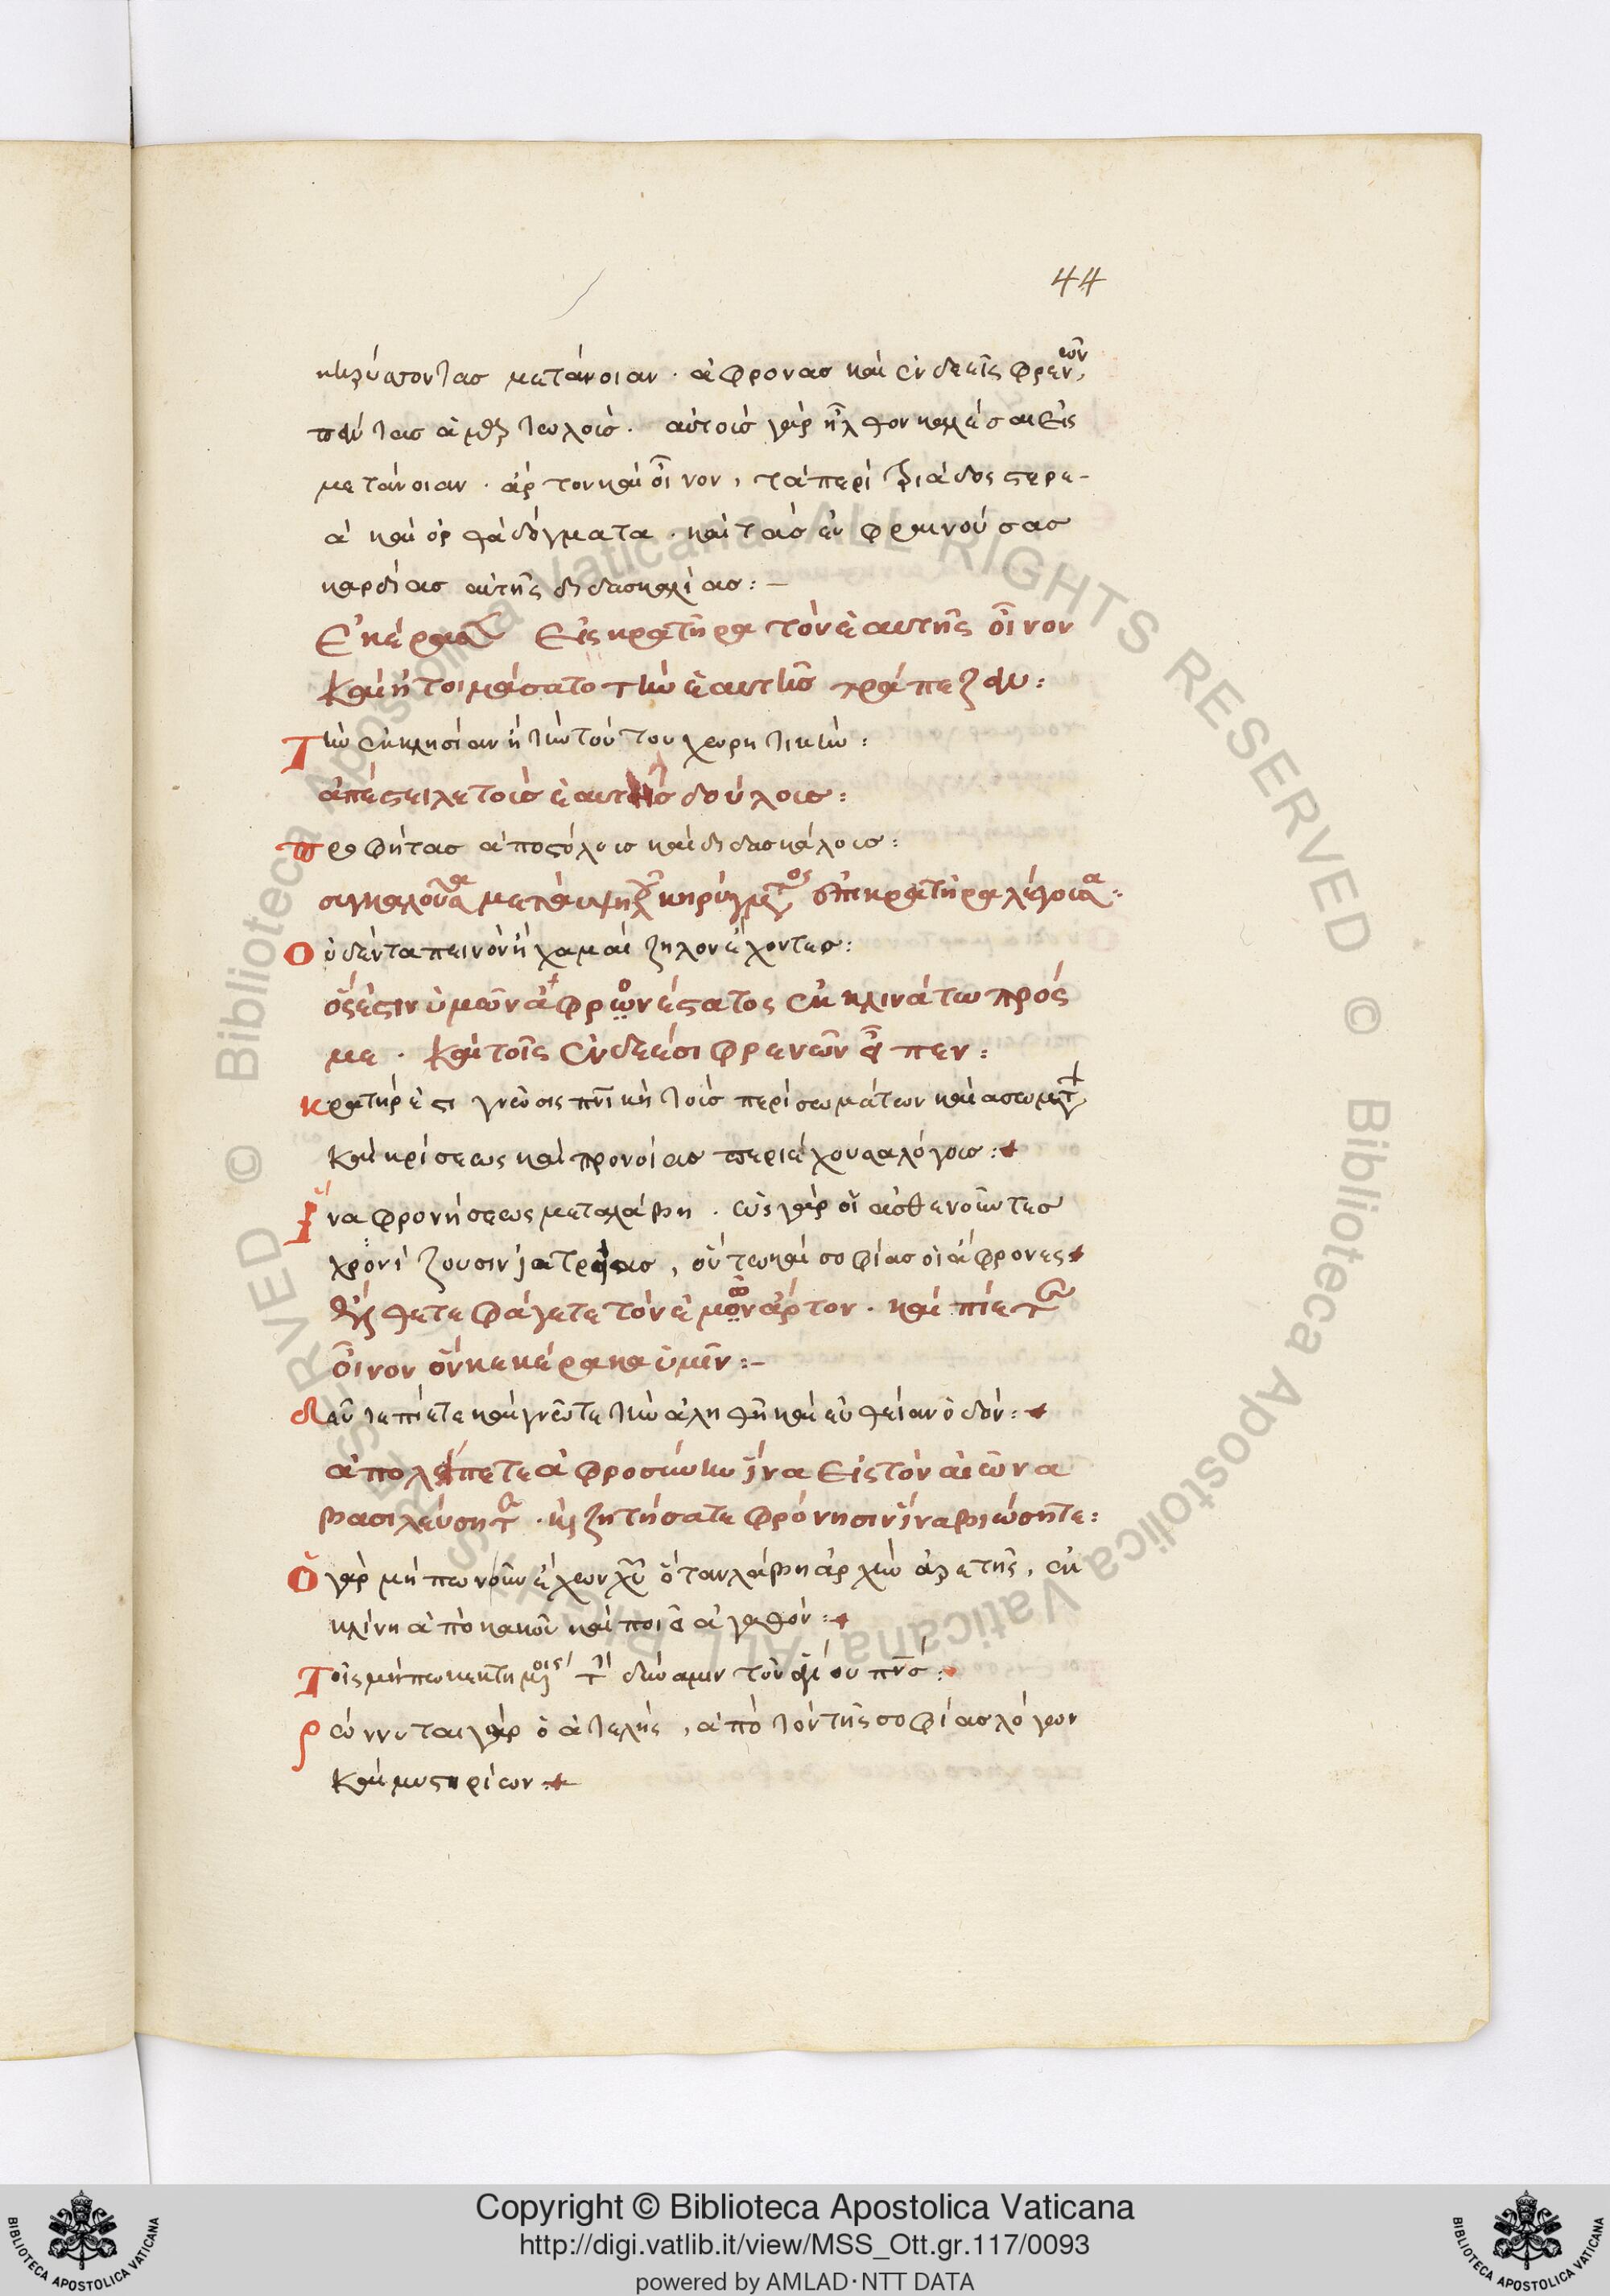 44
κηρύσσοντας μετάνοιαν · ἄφρονας καὶ ἐνδεεῖς φρενῶν,
τοὺς ἁμαρτωλούς · αὐτοὺς γὰρ ἦλθον καλέσαι εἰς
μετάνοιαν · ἄρτον καὶ οἶνον, τὰ περὶ τριάδος στερε-
ὰ καὶ ὀρθὰ δόγματα · καὶ τὰς εὐφραινούσας
καρδίας αὐτῆς διδασκαλίας :–
Ἐκέρασεν εἰς κρατῆρα τὸν ἑαυτῆς οἶνον
καὶ ἡτοιμάσατο τὴν ἑαυτῆς τράπεζαν :
Τὴν ἐκκλησίαν ἢ τὴν τούτου χωρητικήν :
ἀπέστειλε τοὺς ἑαυτῆς δούλους :
προφήτας ἀποστόλους καὶ διδασκάλους :
συγκαλοῦσα μετὰ ὑψηλοῦ κηρύγματος ἐπὶ κρατῆρα λέγουσα :
Οὐδὲν ταπεινὸν ἢ χαμαίζηλον ἔχοντες :
ὅς ἐστιν ὑμῶν ἀφρονέστατος ἐκκλινάτω πρός
με · καὶ τοῖς ἐνδεέσι φρενῶν εἶπεν :
κρατήρ ἐστι γνῶσις πνικὴ τοὺς περὶ σωμάτων καὶ ἀσωμάτων
καὶ κρίσεως καὶ προνοίας περιέχουσα λόγους :
ἵνα φρονήσεως μεταλάβῃ · ὡς γὰρ οἱ ἀσθενοῦντες
χρονίζουσιν ἰατρείας, οὕτω καὶ σοφίας οἱ ἄφρονες
ἔλθετε φάγετε τὸν ἐμὸν ἄρτον · καὶ πίετε
οἶνον ὃν κεκέρακα ὑμῖν :–
δεῦτε πίετε καὶ γνῶτε τὴν ἀληθῆ καὶ εὐθεῖαν ὁδόν :
ἀπολείπετε ἀφροσύνην ἵνα εἰς τὸν αἰῶνα
βασιλεύσητε · καὶ ζητήσατε φρόνησιν ἵνα βιώσητε :
Ὁ γὰρ μήπω νοῦν ἔχων χυ ὅταν λάβῃ ἀρχὴν ἀρετῆς, ἐκ
κλίνῃ ἀπὸ κακοῦ καὶ ποιεῖ ἀγαθόν :
Τοῖς μήπω κεκτημένοις τὴν δύναμιν τοῦ ἁγίου πνς :
ῥώννυται γὰρ ὁ ἀτελής, ἀπὸ τῶν τῆς σοφίας λόγων
καὶ μυστηρίων
Copyright © Biblioteca Apostolica Vaticana
http://digi.vatlib.it/view/MSS_Ott.gr.117/0093
powered by AMLAD·NTT DATA